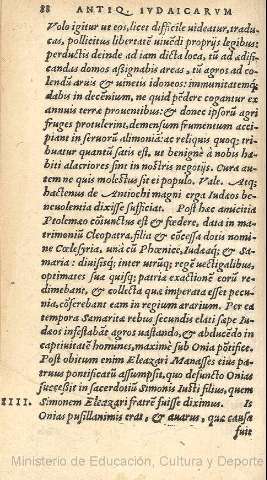 88 ANTIQ. IVDAICARVM
Volo igitur ut eos, licet difficile uideatur, tradu-
cas, pollicitus libertatẽ uiuẽdi proprijs legibus:
perductis deinde ad iam dicta loca, tũ ad ædifi-
candas domos aßignabis areas, tũ agros ad co-
lendũ aruis & uinetis idoneos: immunitatemq́;
dabis in decẽnium, ne quid pẽdere cogantur ex
annuis terræ prouentibus: & donec ipsorũ agri
fruges protulerint, demensum frumentum acci-
piant in seruorũ alimoniã: ac reliquis quoq; tri-
buatur quantũ satis est, ut benigne à nobis ha-
biti alacriores sint in nostris negotijs. Cura au-
tem ne qui molestus sit ei populo. Vale. Atq;
hactenus de Antiochi magni erga Iudæos be-
neuolentia dixisse sufficiat. Post hæc amicitia
Ptolemæo cõiunctus est & fœdere, data in ma-
trimoniũ Cleopatra, filia & cõcessa dotis nomi-
ne Cœlesyria, unà cũ Phœnice, Iudæaq; & Sa-
maria: diuisisq; inter utrũq; regẽ uectigalibus,
optimates suæ quisq; patriæ exactionẽ corũ re-
dimebant, & collecta quæ imperata esset pecu-
nia, cõferebant eam in regium ærarium. Per ea
tempora Samaritæ rebus secundis elati sæpe Iu-
dæos infestabãt agros uastando, & abducẽdo in
captiuitatẽ homines, maximè sub Onia põtifice.
Post obitum enim Eleazari Manasses eius pa-
truus pontificatũ assumpsit, quo defuncto Onias
successit in sacerdotiũ Simonis Iusti filius, quem
IIII. Simonem Eleazari fratrẽ fuisse diximus. Is
Onias pusillanimis erat, & auarus, qua causa
fuit
Ministerio de Educación, Cultura y Deporte